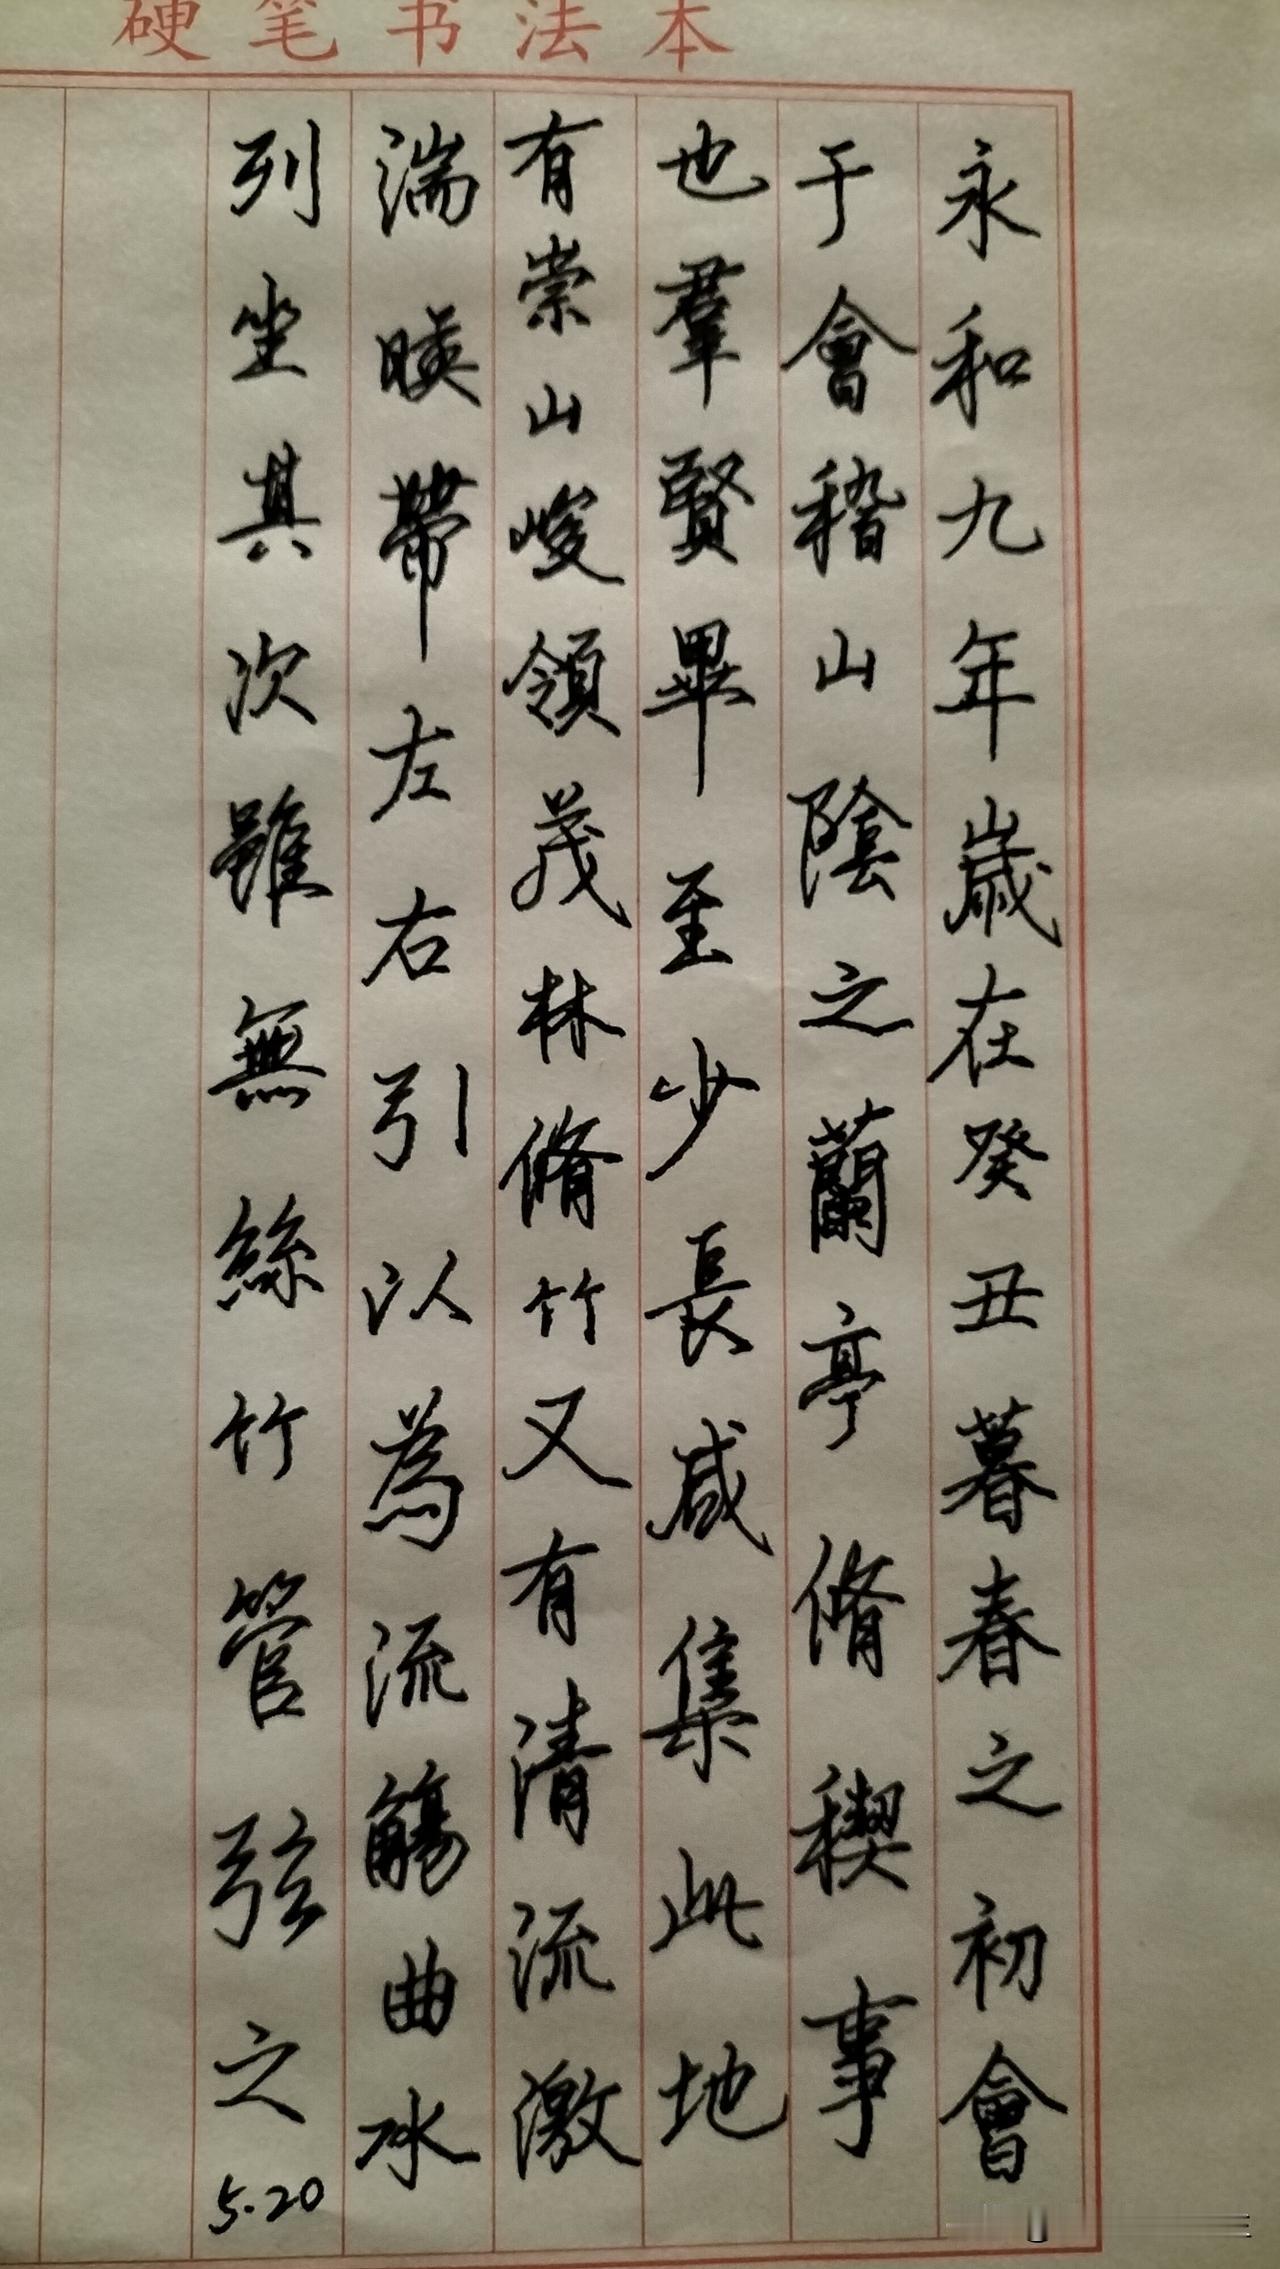 硬笔书法本
永和九年歲在癸丑暮春之初會
于會稽山陰之蘭亭脩稧事
也羣賢畢至少長咸集此地
有崇山峻領茂林脩竹又有清流激
湍暎帶左右引以為流觴曲水
列坐其次雖無絲竹管弦之
5.20